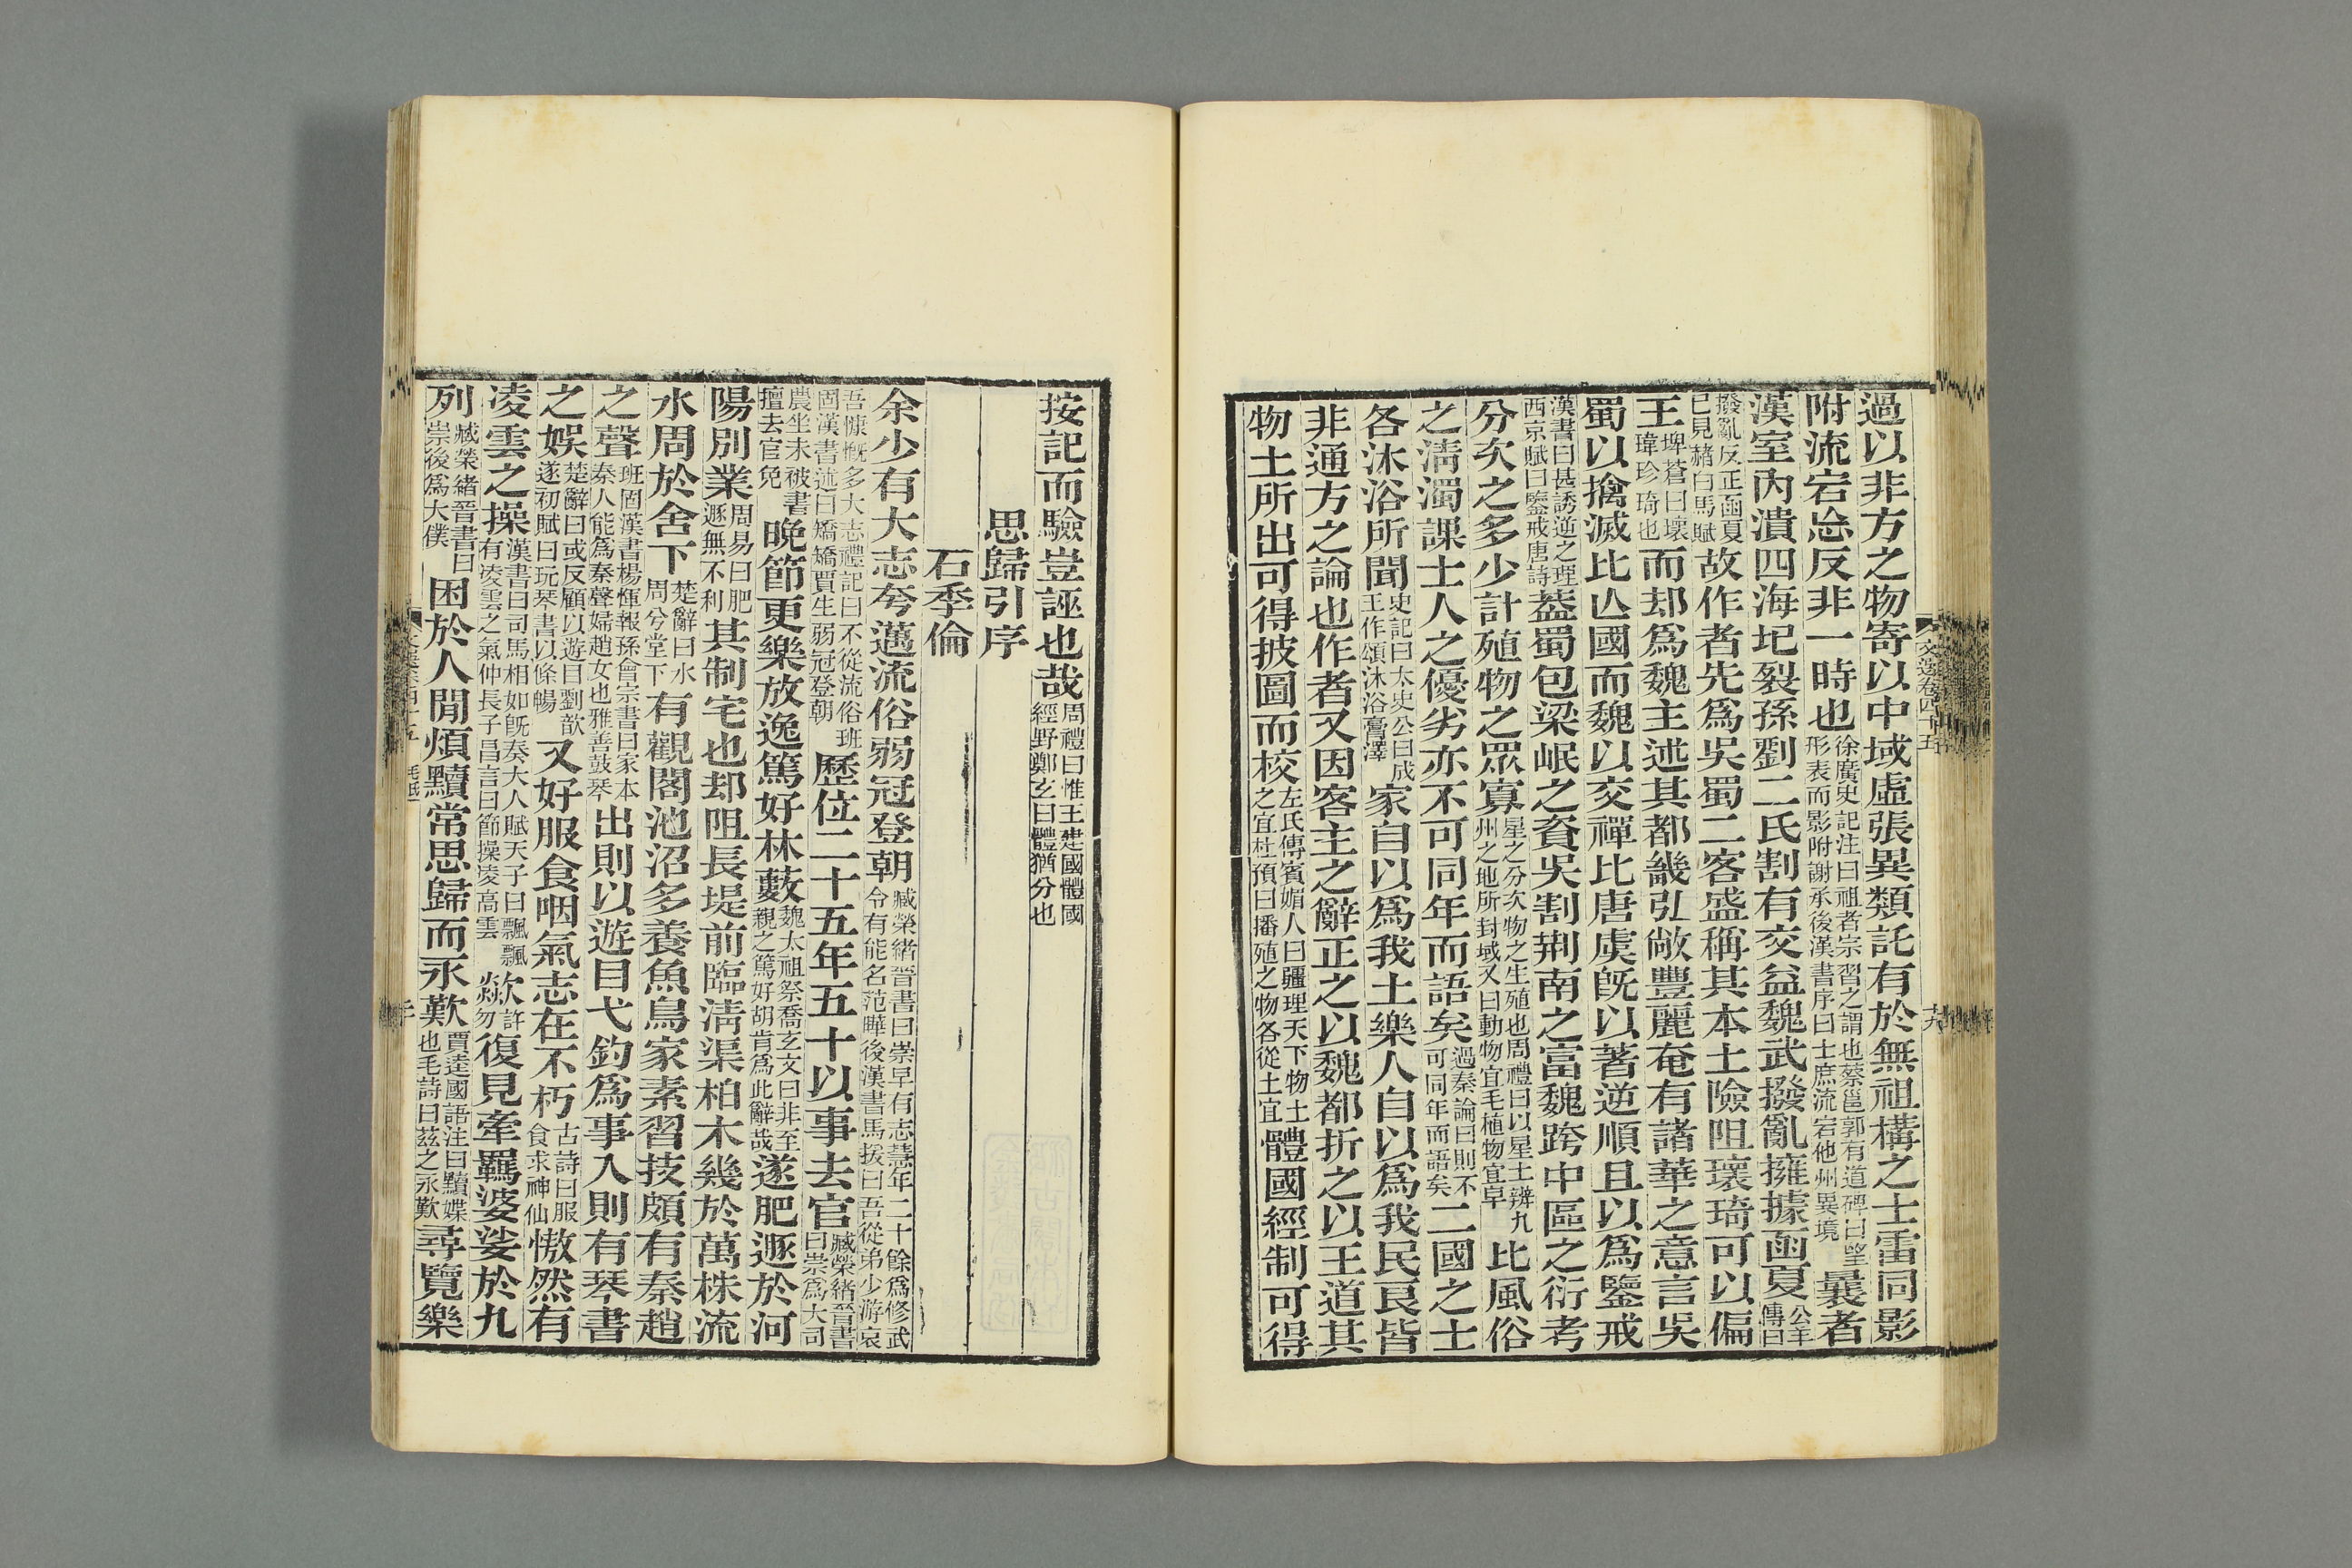 過以非方之物寄以中域虛張異類託有於無祖構之士雷同影
附流宕忘反非一時也徐廣史記注曰祖者宗習之謂也蔡邕郭有道碑曰望形表而影附謝承後漢書序曰士庶流宕他州異境曩者
漢室內潰四海圮裂孫劉二氏割有交益魏武撥亂擁據函夏公羊傳曰
撥亂反正函夏已見赭白馬賦故作者先為吳蜀二客盛稱其本土險阻瓌琦可以偏
王埤蒼曰瓌瑋珍琦也而却為魏主述其都畿弘敞豐麗奄有諸華之意言吳
蜀以擒滅比亾國而魏以交禪比唐虞旣以著逆順且以為鑒戒
漢書曰甚誘逆之理西京賦曰鑒戒唐詩葢蜀包梁岷之資吳割荆南之富魏跨中區之衍考
分次之多少計殖物之眾寡星之分次物之生殖也周禮曰以星土辨九州之地所封域又曰動物宜毛植物宜早比風俗
之淸濁課士人之優劣亦不可同年而語矣過秦論曰則不可同年而語矣二國之士
各沐浴所聞史記曰太史公曰成王作頌沐浴膏澤家自以為我土樂人自以為我民良皆
非通方之論也作者又因客主之辭正之以魏都折之以王道其
物土所出可得披圖而校左氏傳賓媚人曰疆理天下物土之宜杜預曰播殖之物各從土宜體國經制可得
文選卷四十五
十九
按記而驗豈誣也哉周禮曰惟王建國體國經野鄭玄曰體猶分也
思歸引序
石季倫
余少有大志夸邁流俗弱冠登朝臧榮緒晉書曰崇早有志慧年二十餘為修武令有能名范曄後漢書馬援曰吾從弟少游哀
吾慷慨多大志禮記曰不從流俗班固漢書述曰矯矯賈生弱冠登朝歷位二十五年五十以事去官臧榮緒晉書曰崇為大司
農坐未被書擅去官免晚節更樂放逸篤好林藪魏太祖祭喬玄文曰非至親之篤好胡肯為此辭哉遂肥遯於河
陽別業周易曰肥遯無不利其制宅也却阻長堤前臨淸渠柏木幾於萬株流
水周於舍下楚辭曰水周兮堂下有觀閣池沼多養魚鳥家素習技頗有秦趙
之聲班固漢書楊惲報孫會宗書曰家本秦人能為秦聲婦趙女也雅善鼓琴出則以遊目弋釣為事入則有琴書
之娛楚辭曰或反顧以遊目劉歆遂初賦曰玩琴書以條暢又好服食咽氣志在不朽古詩曰服食求神仙慠然有
凌雲之操漢書曰司馬相如旣奏大人賦天子曰飄飄有凌雲之氣仲長子昌言曰節操凌高雲歘許勿燚復見牽羈婆娑於九
列臧榮緒晉書曰崇後為大僕困於人閒煩黷常思歸而永歎賈逵國語注曰黷媟也毛詩曰茲之永歎尋覽樂